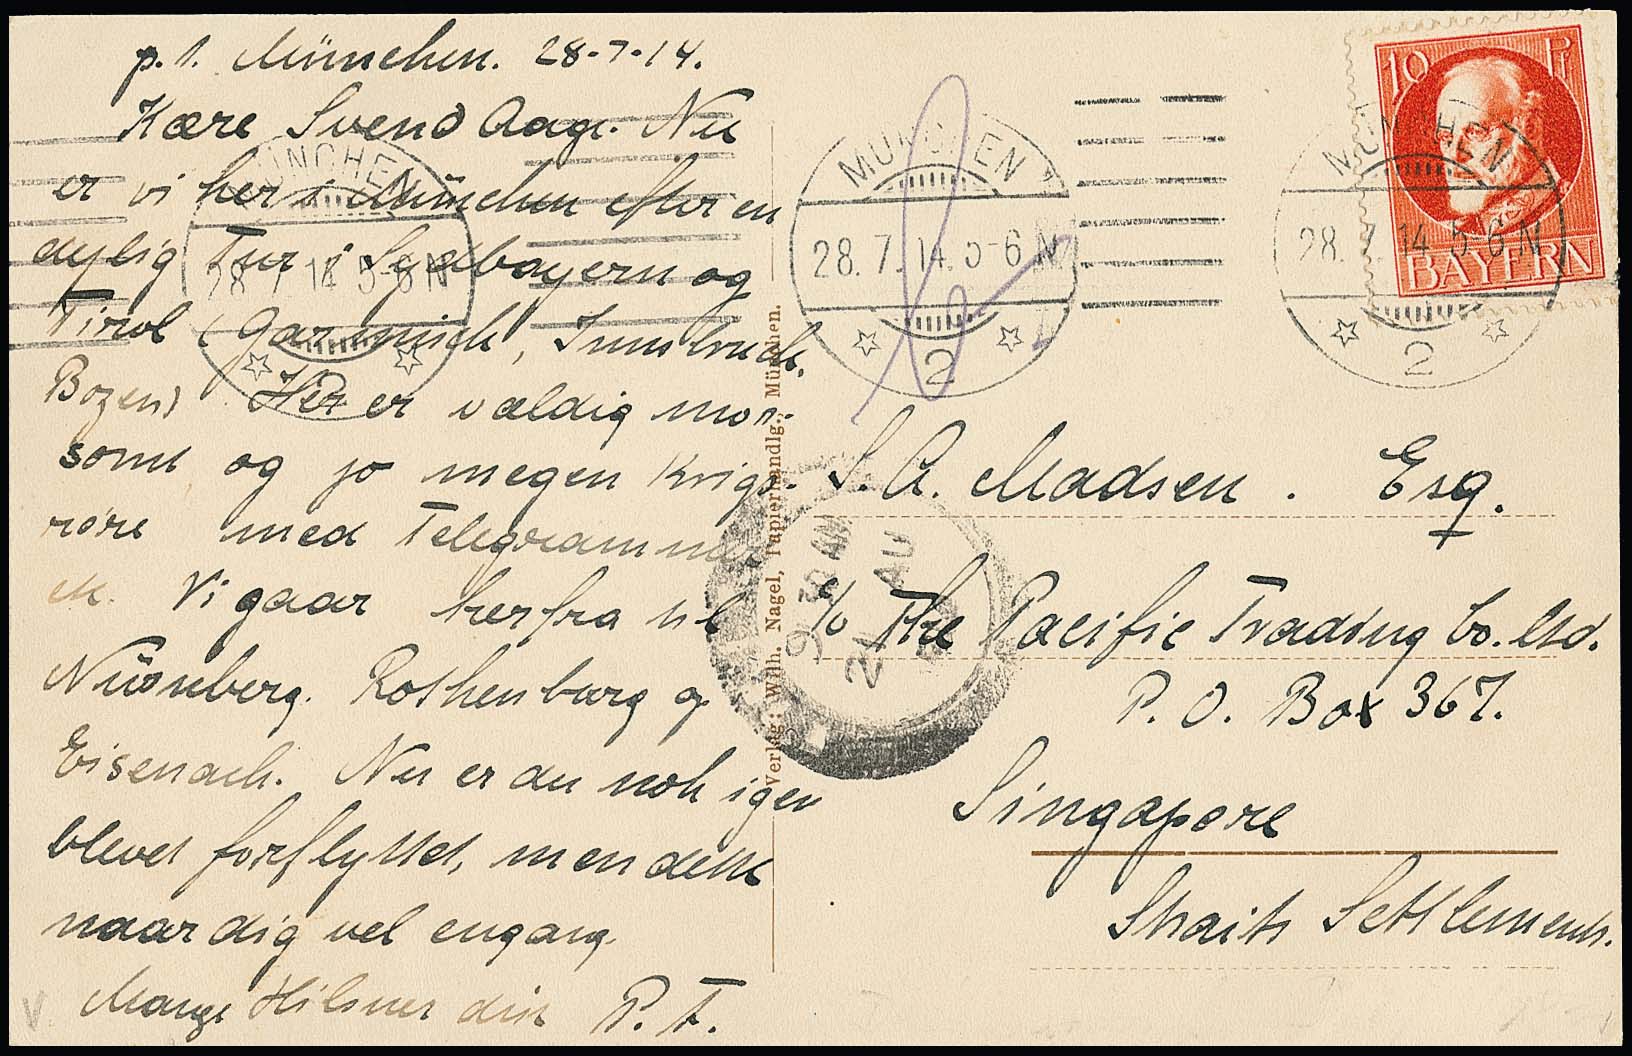 p. t. München. 28-7-14.
Kære Svend Aage. Nu
er vi her i München efter en
dejlig Tur i Sydbayern og
Tirol (Garmisch, Innsbruck,
Bozen) Her er vældig mor-
somt og jo megen Krigs-
røre med Telegrammer
etc. Vi gaar herfra til
Nürnberg. Rothenburg og
Eisenach. Nu er du nok igen
blevet forflyttet, men dette
naar dig vel engang.
Mange Hilsner din P. T.
Verlag: Wilh. Nagel, Papierhandlg., München.
10 Pf
BAYERN
MÜNCHEN
28. 7. 14. 5-6 N
2
MÜNCHEN
28. 7. 14. 5-6 N
2
MÜNCHEN
28. 7. 14 5-6 N
S. A. Madsen. Esq.
c/o The Pacific Trading Co. Ltd.
P. O. Box 367.
Singapore
Straits Settlements.
AM
21 AU